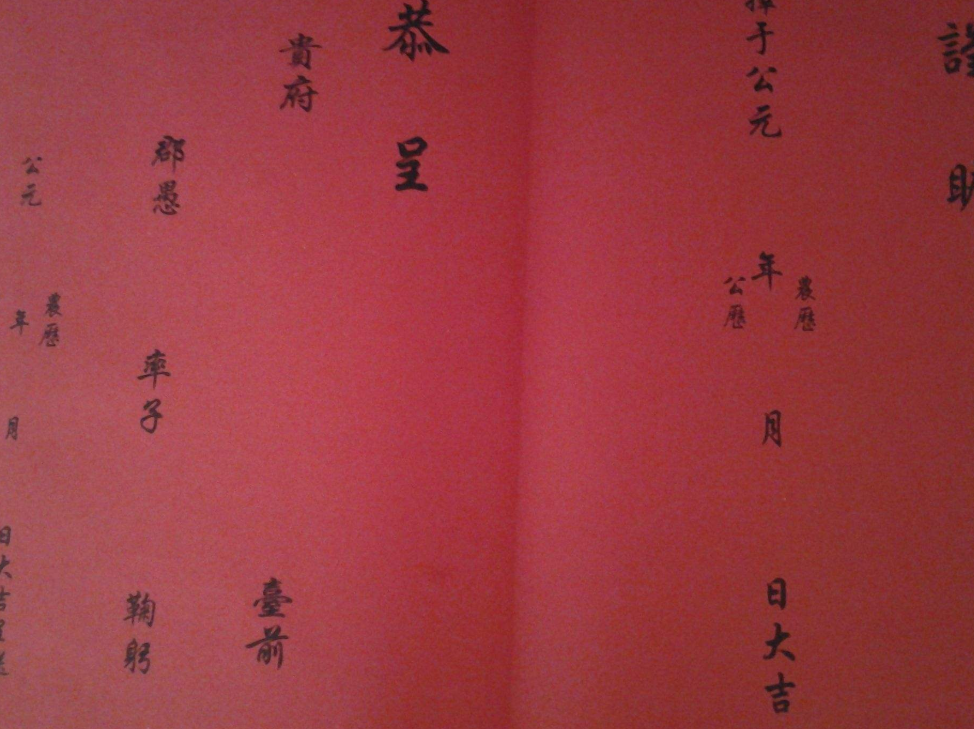 謹
擇于公元 年 月 日大吉
農歷
公歷
恭呈
貴府 臺前
郡愚 率子 鞠躬
農歷
公元 年 月 日大吉